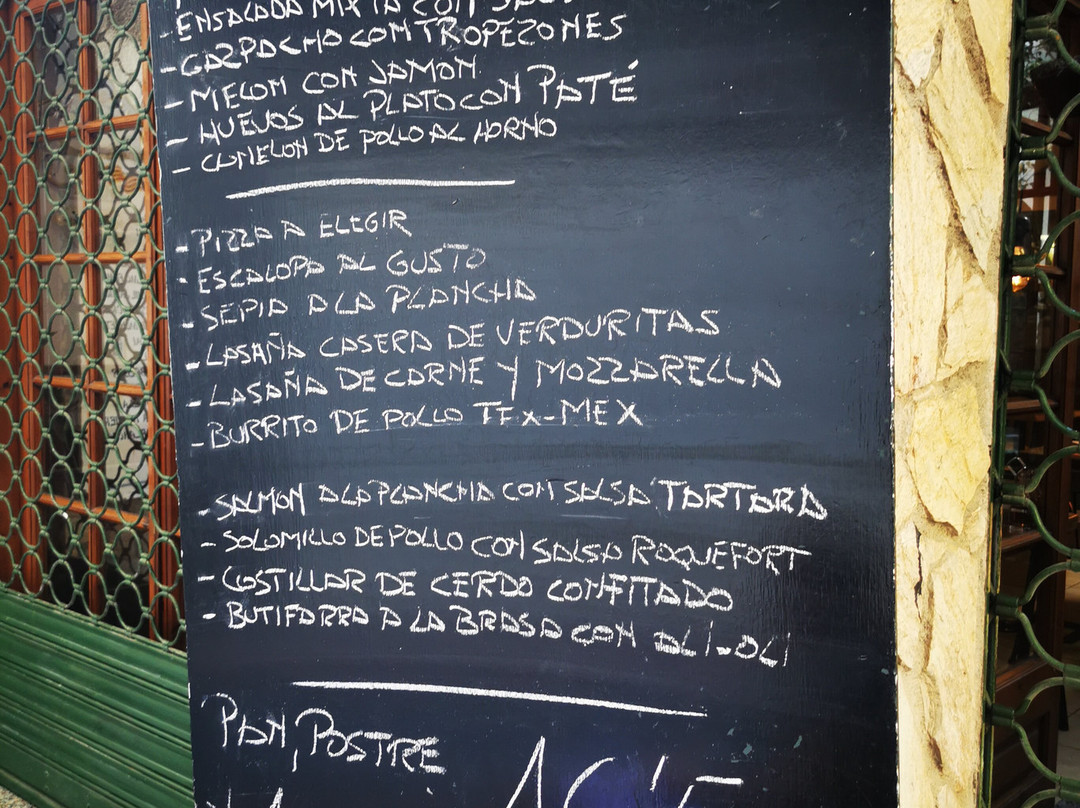 - ENSALADA MIXTA CON
- GAZPACHO CON TROPEZONES
- MELON CON JAMON
- HUEVOS AL PLATO CON PATÉ
- CANELON DE POLLO AL HORNO
- PIZZA A ELEGIR
- ESCALOPA AL GUSTO
- SEPIA A LA PLANCHA
- LASAÑA CASERA DE VERDURITAS
- LASAÑA DE CARNE Y MOZZARELLA
- BURRITO DE POLLO TEX-MEX
- SALMON A LA PLANCHA CON SALSA TARTARA
- SOLOMILLO DE POLLO CON SALSA ROQUEFORT
- COSTILLAR DE CERDO CONFITADO
- BUTIFARRA A LA BRASA CON ALI-OLI
PAN, POSTRE